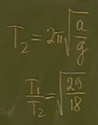 T₂ = 2π√(a/g)
T₁/T₂ = √(29/18)